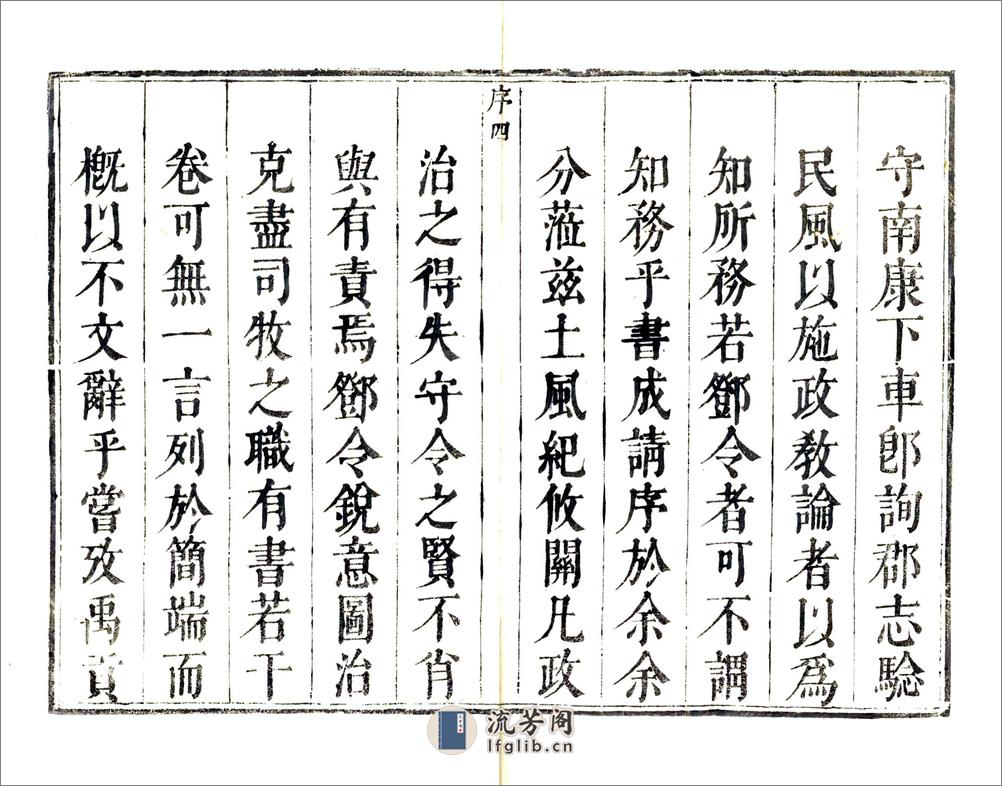 守南康下車卽詢郡志驗
民風以施政敎論者以爲
知所務若鄧令者可不謂
知務乎書成請序於余余
分蒞茲土風紀攸關凡政
序四
治之得失守令之賢不肖
與有責焉鄧令銳意圖治
克盡司牧之職有書若干
卷可無一言列於簡端而
槪以不文辭乎嘗攷禹貢
流芳阁
lfglib.cn